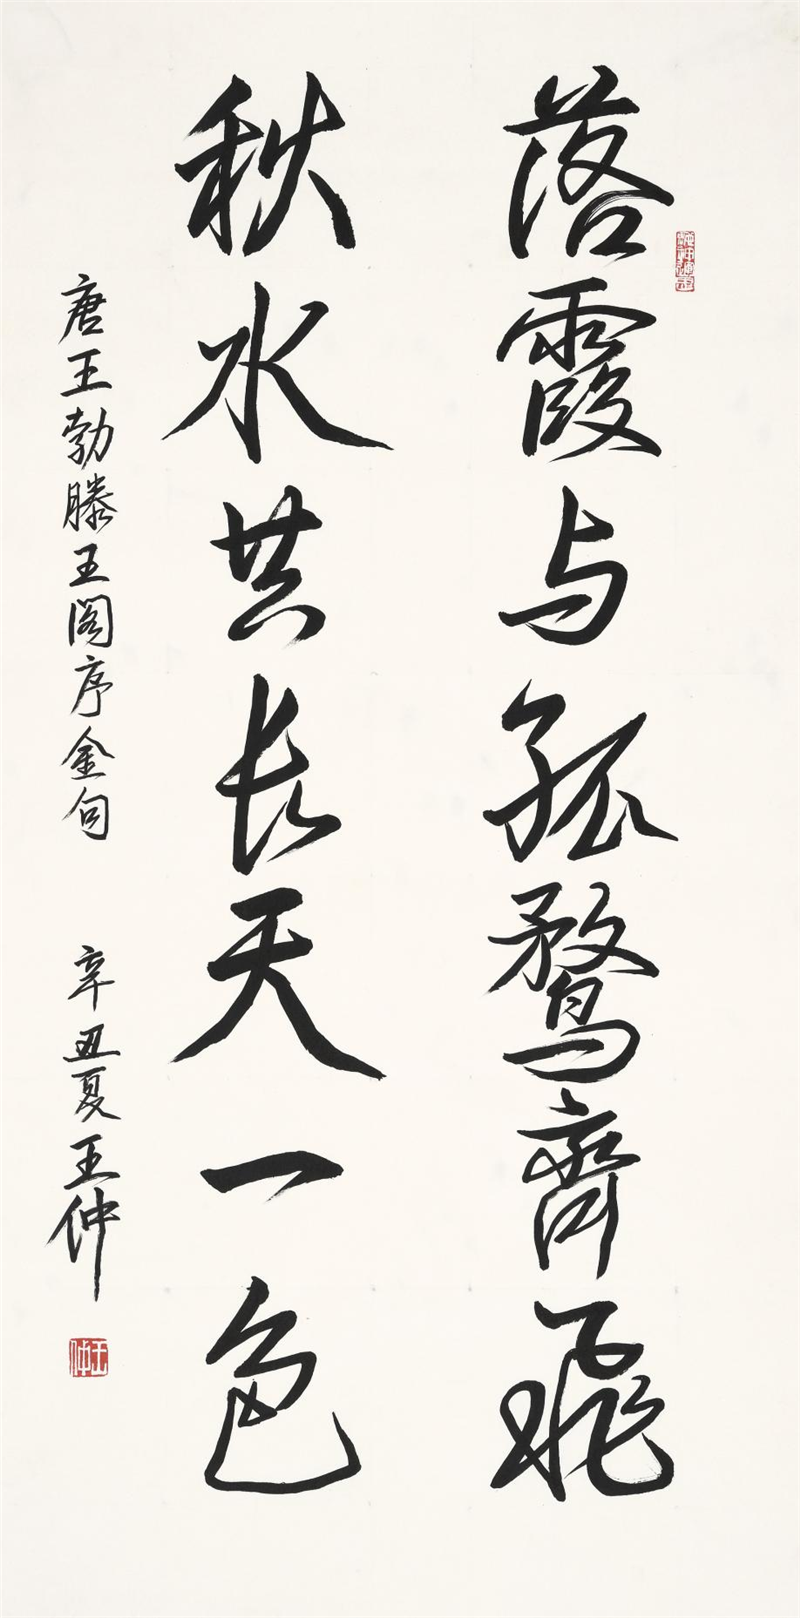 落霞与孤鹜齊飛
秋水共长天一色
唐王勃滕王阁序金句 辛丑夏王仲
王仲